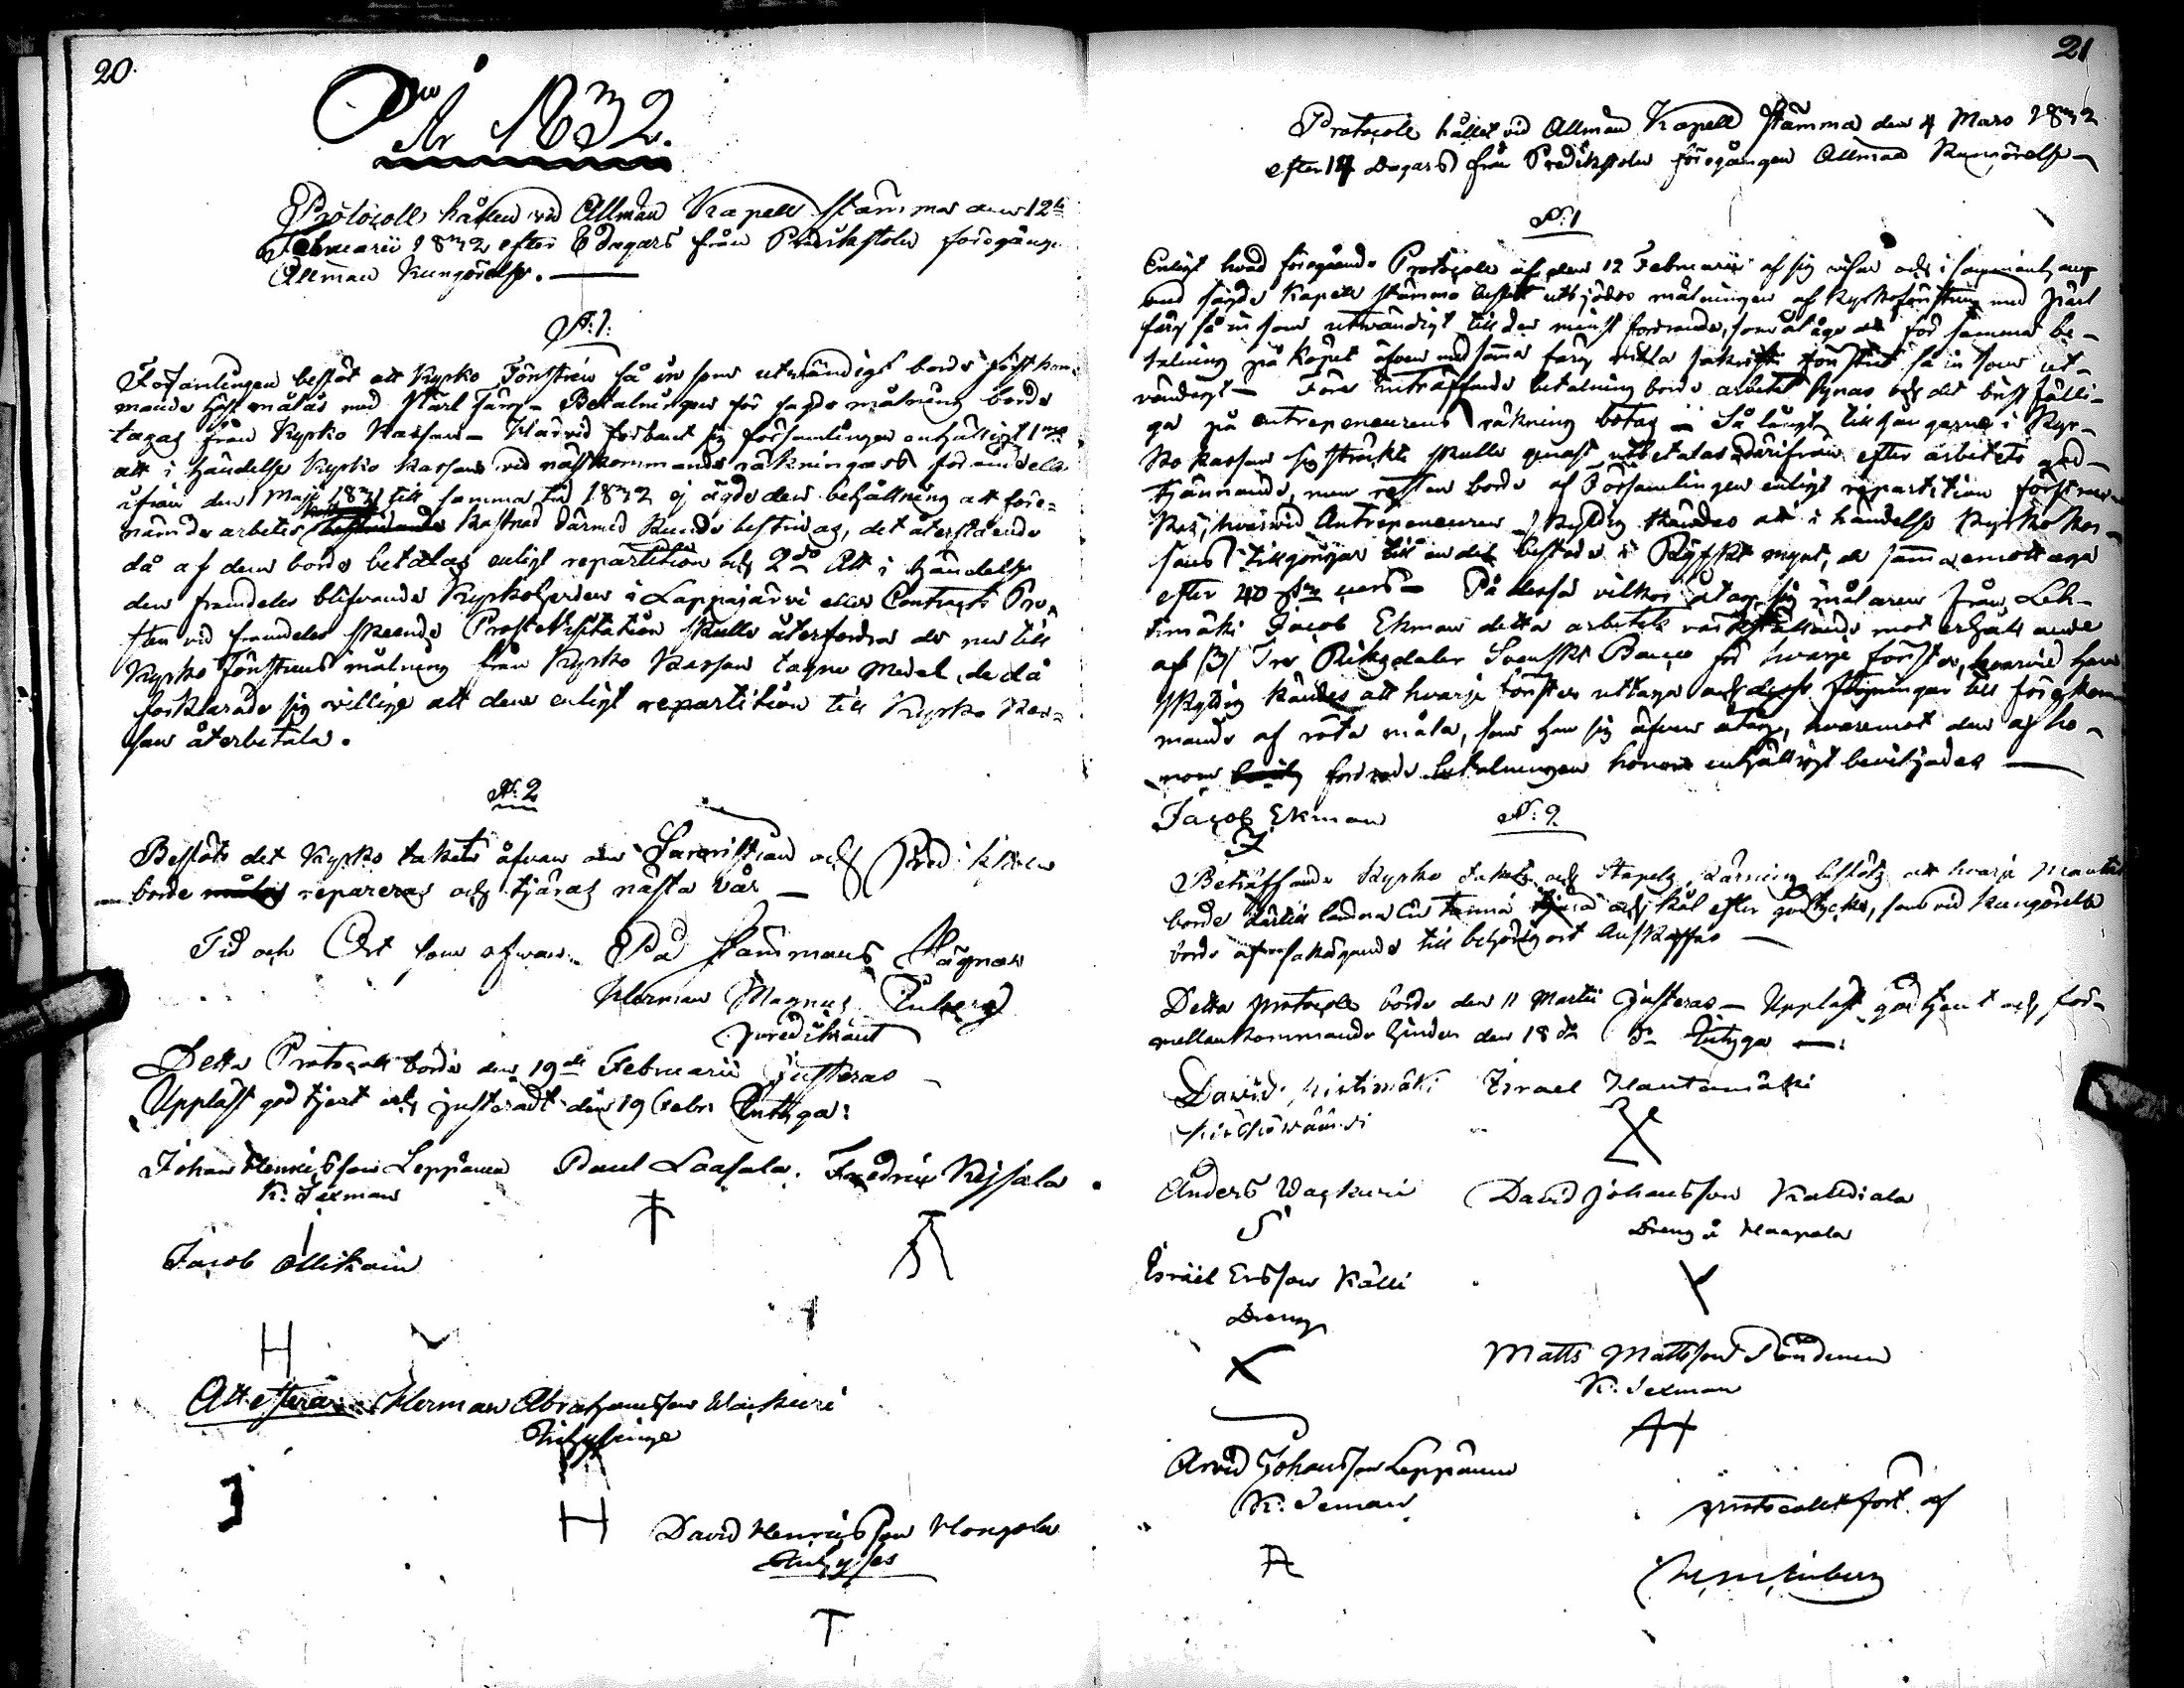 20.
År 1832.
Protocoll hållen vid Allmän Kapell Stämma den 12te
Februarii 1832 efter 8 dagars från Predikstolen föregången
Allmän Kungörelse.
N:1.
Församlingen beslöt att Kyrko Fönstren så in som utvändigt borde först kom-
mande höst målas med Pärl färg - Betalningen för sagde målning borde
tagas från Kyrko Kassan - Hvarvid förbant sig församlingen enhälligt 1mo
att i händelse Kyrko Kassan vid nästkommande räkning
ifrån den 1 Maji 1831 till samma tid 1832 ej ägde den behållning att före-
nämnde arbetes kostnad därmed kunde bestridas, det återstående
då af dem borde betalas enligt repartition och 2do Att i händelse
den framdeles blifvande Kyrkoherden i Lappajärvi eller Contracts Pro-
sten vid framdeles skeende Prostevisitation skulle återfordra de nu till
Kyrko Fönstrens målning från Kyrko Kassan tagne Medel, de då
förklarade sig villige att dem enligt repartition till Kyrko Kas-
san återbetala.
N:2
Beslöts det Kyrko taket äfven Sacristian och
borde repareras och tjäras nästa vår -
Tid och Ort som ofvan. På Stämmans Vägnar
Herman Magnus
predikant
Detta Protocoll borde den 19de Februarii justeras -
Uppläst godkjent och justeradt den 19 Febr: Intyga:
Johan Henricsson Leppänen Paul Laasala. Fredric Kejsala
K. Sexman
Jacob Ollikain
H
Attesterar Herman Abrahamsson Waskuri
H David Henricsson Hongola
T
21
Protocoll hållet vid Allman Kapell Stämma den 4 Mars 1832
efter 14 Dagars från Predikstolen föregången Allman Kungörelse
N:1
Enligt hvad föregående Protocoll af den 12 Februarii af sig visar och i sammanhang
med sagde Kapell Stämma beslut utbjödes målningen af Kyrkofönstren med pärl
färg så in som utvändigt till den minst fordrande, som ålåge att för samma be-
talning på köpet äfven med samma färg måla fönstret så in som ut-
vändigt - Före inträffande betalning borde arbetet synas och det bristfälli-
ga på entrepeneurens räkning botas - Så långt tillgångarne i Kyr-
ko kassan sig sträckte skulle genast utbetalas därifrån efter arbetets god-
kjännande, men resten borde af Församlingen enligt repartition
hvarvid Antrepeneuren skyldig kändes att i händelse Kyrko Kas-
sans tillgångar till en del bestode i Ryskt mynt, de samma emottaga
efter På dessa vilkor åtog sig målaren från Leh-
timäki Jacob Ekman detta arbetets verkställande mot erhållande
af /3/ Tre Riksdaler Svenskt Banco för hvarje fönster, hvarvid han
skyldig kändes att hvarje fönster uttaga och dess fogningar till förekom-
mande af röta måla, som han sig äfven åtog, hvaremot den af ho-
nom fordrade betalningen honom enhälligt beviljades
Jacob Ekman N:2
Beträffande Kyrko takets och Stapels tärning beslöts att hvarje
borde därtill lemna en kanna tjära och kål efter godtycke, som vid kungörelse
borde af till behörig ort anskaffas
Detta protocoll borde den 11 Martii justeras - Uppläst, godkjent och för-
mellankommande hinder den 18de Intyga
David Israel Hautamäki
Anders Waskuri David Johansson Kaudiala
Dreng å Haapala
Israel Ersson Källi
Dreng
X
Matts Mattsson
K. Sexman
Arvid Johansson Leppänen
K. Sexman
protocollet fört af